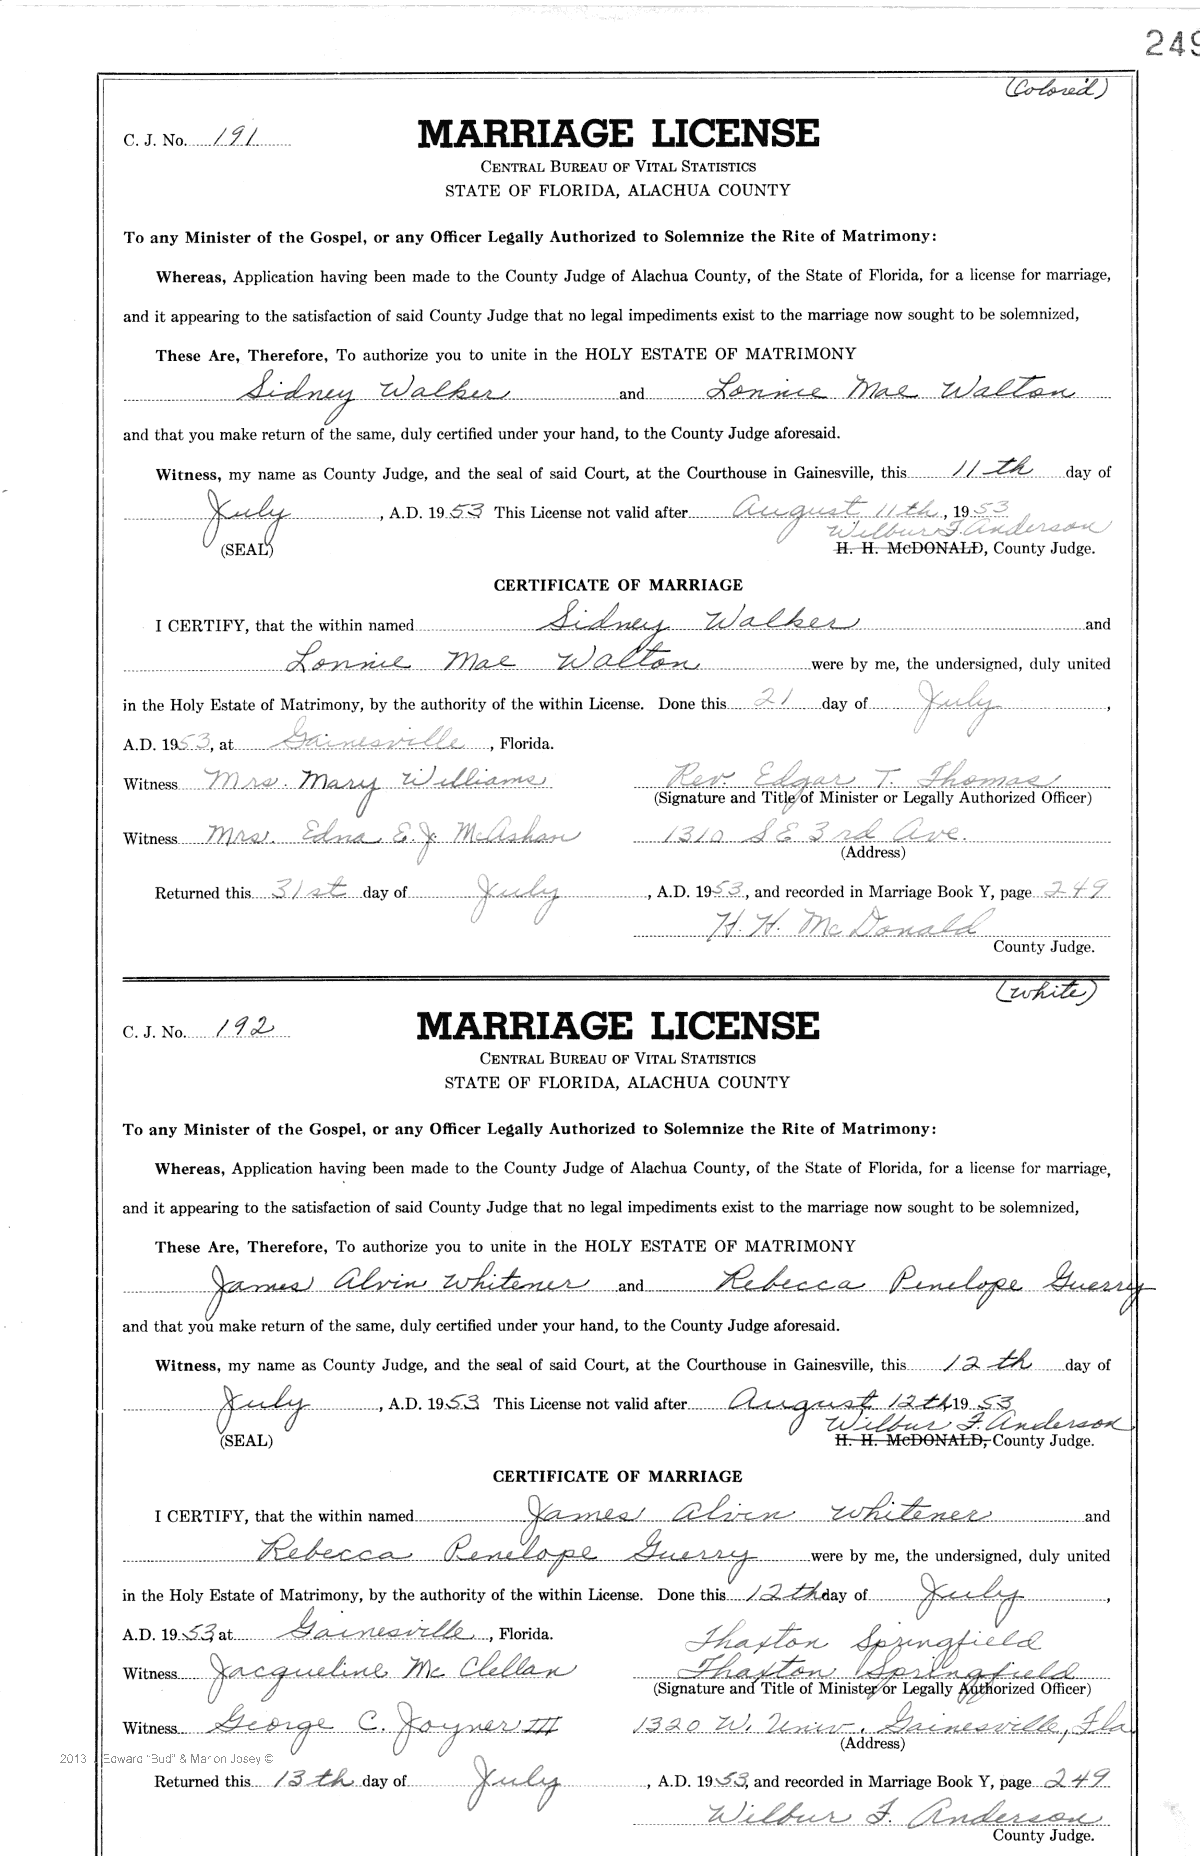 249
(Colored)
C. J. No. 191
MARRIAGE LICENSE
CENTRAL BUREAU OF VITAL STATISTICS
STATE OF FLORIDA, ALACHUA COUNTY
To any Minister of the Gospel, or any Officer Legally Authorized to Solemnize the Rite of Matrimony:
Whereas, Application having been made to the County Judge of Alachua County, of the State of Florida, for a license for marriage,
and it appearing to the satisfaction of said County Judge that no legal impediments exist to the marriage now sought to be solemnized,
These Are, Therefore, To authorize you to unite in the HOLY ESTATE OF MATRIMONY
Sidney Walker and Lonnie Mae Walton
and that you make return of the same, duly certified under your hand, to the County Judge aforesaid.
Witness, my name as County Judge, and the seal of said Court, at the Courthouse in Gainesville, this 11th day of
July, A.D. 1953 This License not valid after August 11th, 1953
Wilbur F. Anderson
(SEAL) H. H. McDONALD, County Judge.
CERTIFICATE OF MARRIAGE
I CERTIFY, that the within named Sidney Walker and
Lonnie Mae Walton were by me, the undersigned, duly united
in the Holy Estate of Matrimony, by the authority of the within License. Done this 21 day of July,
A.D. 1953, at Gainesville, Florida.
Witness Mrs. Mary Williams Rev. Edgar T. Thomas
(Signature and Title of Minister or Legally Authorized Officer)
Witness Mrs. Edna E. J. McAshan 1310 S E 3rd Ave.
(Address)
Returned this 31st day of July, A.D. 1953, and recorded in Marriage Book Y, page 249
H. H. McDonald
County Judge.
(White)
C. J. No. 192
MARRIAGE LICENSE
CENTRAL BUREAU OF VITAL STATISTICS
STATE OF FLORIDA, ALACHUA COUNTY
To any Minister of the Gospel, or any Officer Legally Authorized to Solemnize the Rite of Matrimony:
Whereas, Application having been made to the County Judge of Alachua County, of the State of Florida, for a license for marriage,
and it appearing to the satisfaction of said County Judge that no legal impediments exist to the marriage now sought to be solemnized,
These Are, Therefore, To authorize you to unite in the HOLY ESTATE OF MATRIMONY
James Alvin Whitener and Rebecca Penelope Guerry
and that you make return of the same, duly certified under your hand, to the County Judge aforesaid.
Witness, my name as County Judge, and the seal of said Court, at the Courthouse in Gainesville, this 12th day of
July, A.D. 1953 This License not valid after August 12th 1953
Wilbur F. Anderson
(SEAL) H. H. McDONALD, County Judge.
CERTIFICATE OF MARRIAGE
I CERTIFY, that the within named James Alvin Whitener and
Rebecca Penelope Guerry were by me, the undersigned, duly united
in the Holy Estate of Matrimony, by the authority of the within License. Done this 12th day of July,
A.D. 1953, at Gainesville, Florida.
Thaxton Springfield
Witness Jacqueline McClellan Thaxton Springfield
(Signature and Title of Minister or Legally Authorized Officer)
Witness George C. Joyner III 1320 W. Univ. Gainesville, Fla
(Address)
2013 Edward "Bud" & Marion Josey ©
Returned this 13th day of July, A.D. 1953, and recorded in Marriage Book Y, page 249
Wilbur F. Anderson
County Judge.